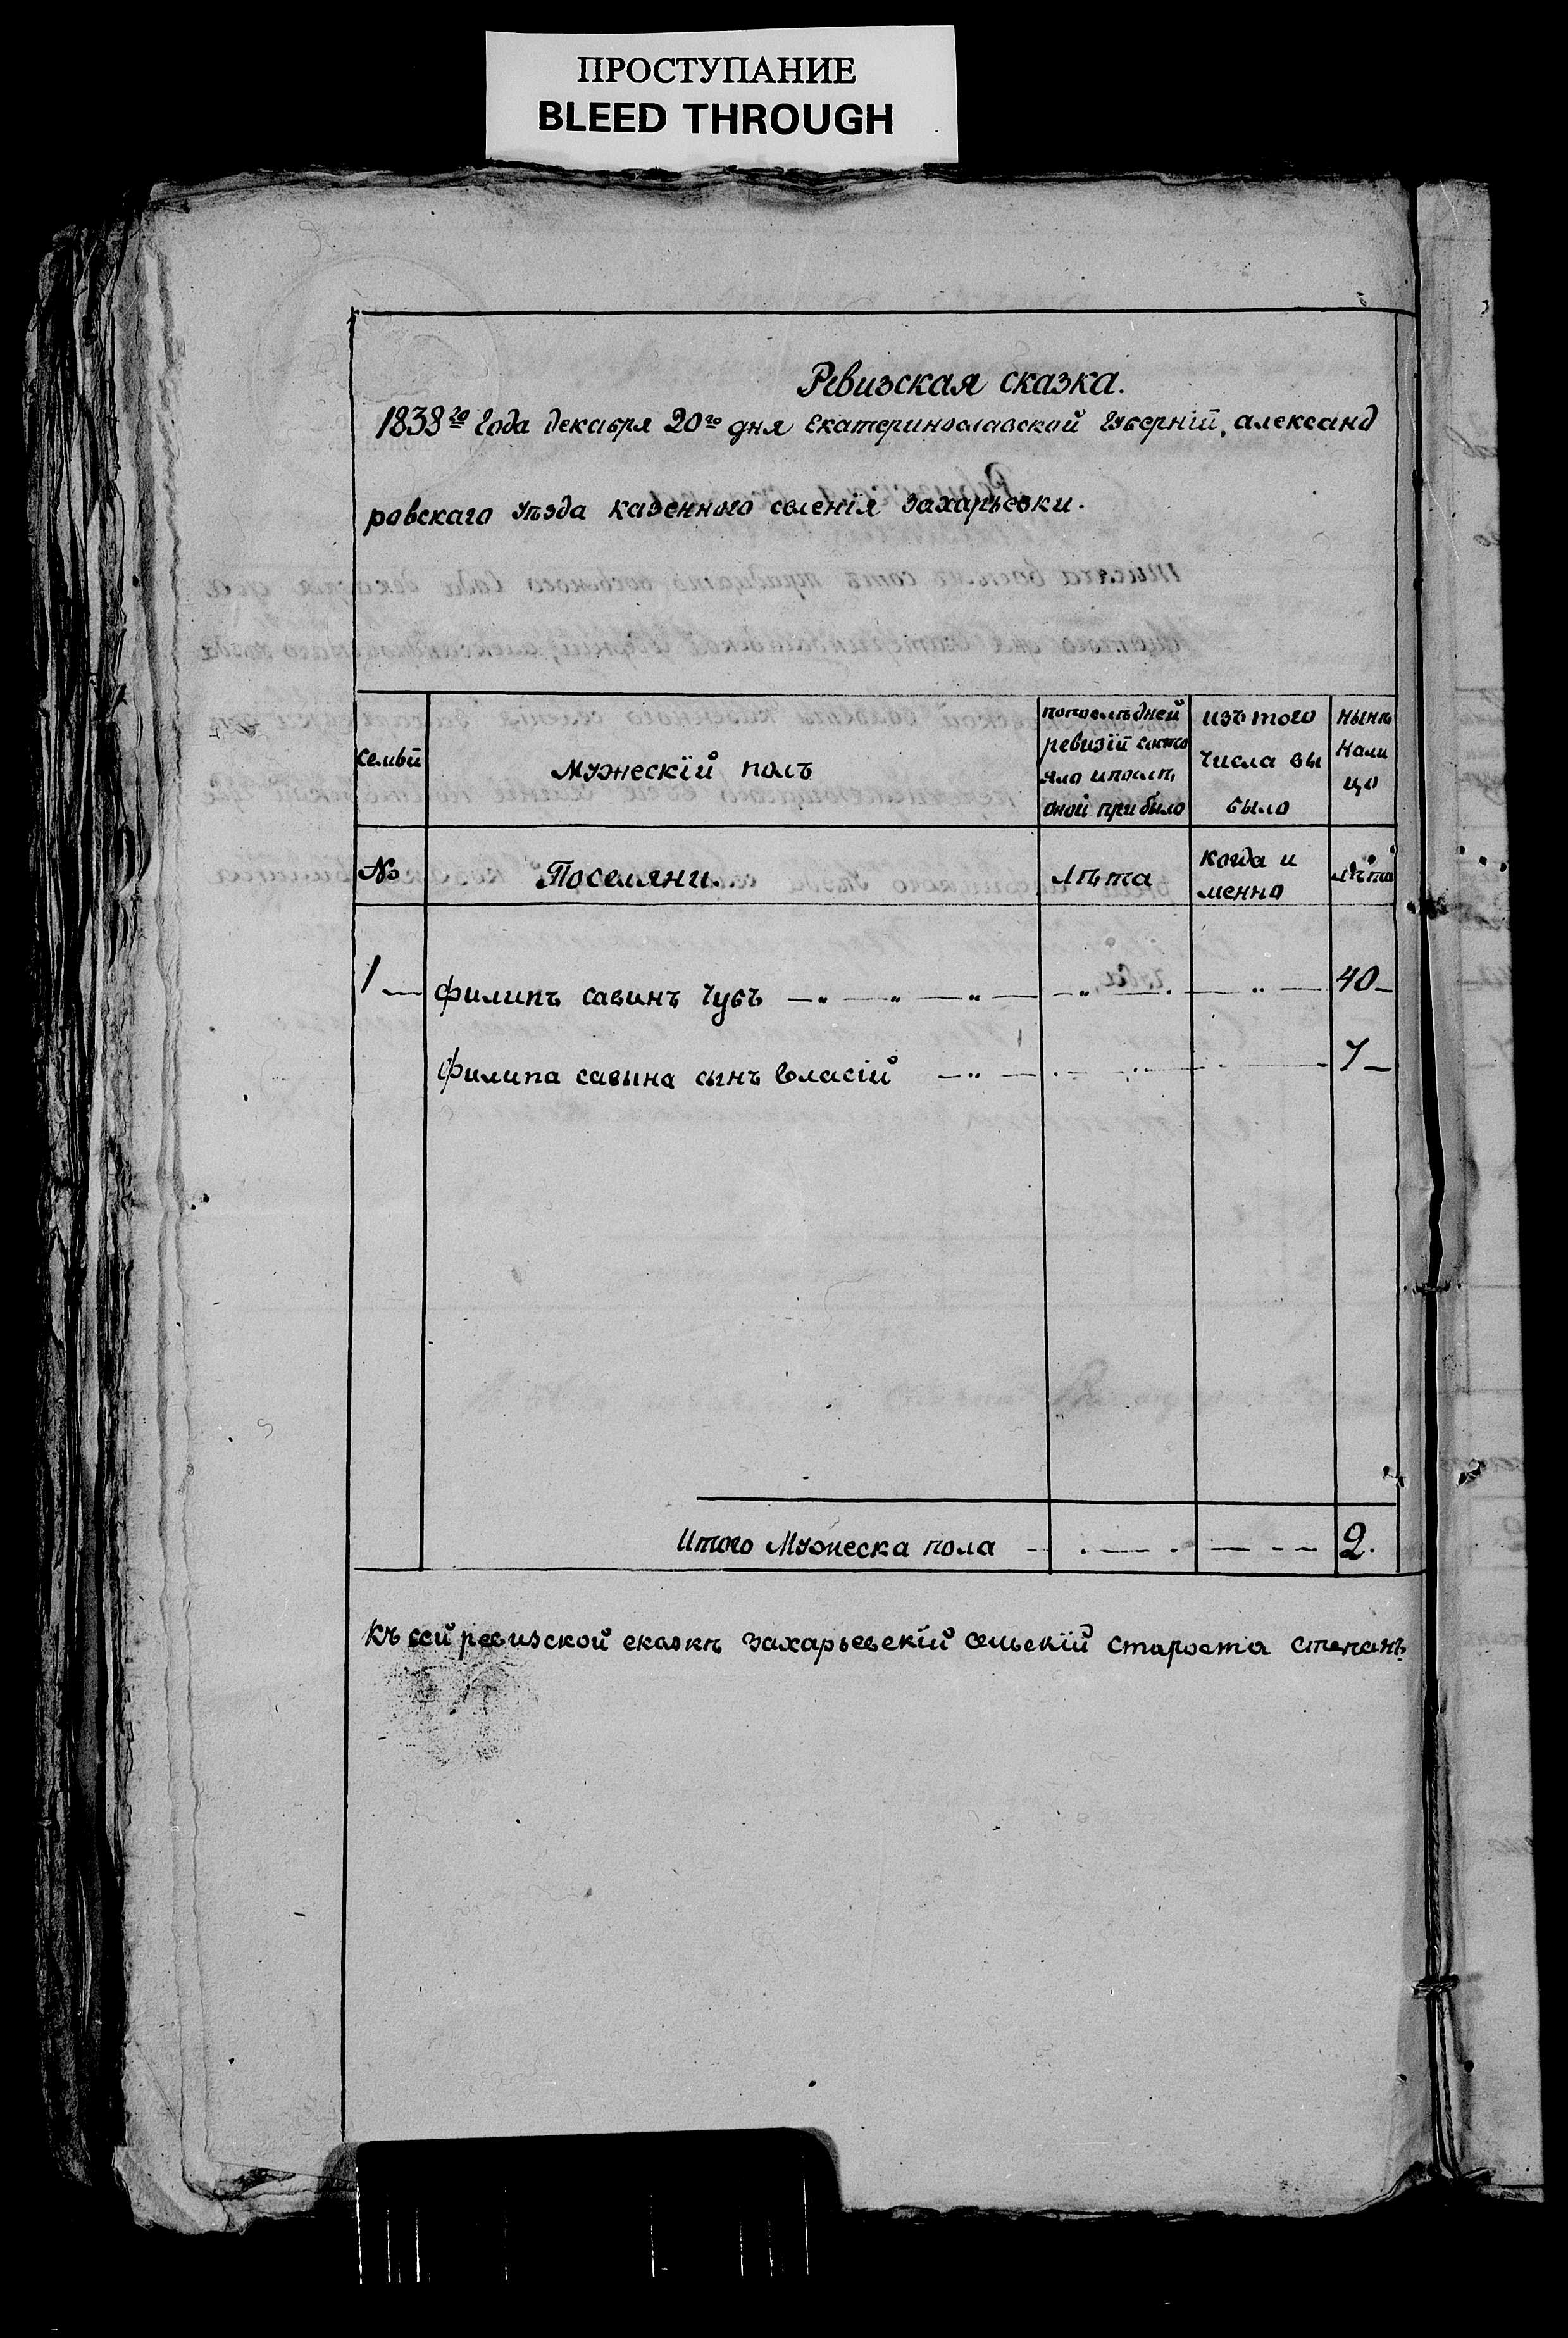 ПРОСТУПАНИЕ
BLEED THROUGH
Ревизская сказка.
1838го года декабря 20го дня Екатеринославской Губерніи, александ
ровскаго уѣзда казенного селенія Захарьевки.
семьи
Мужескій полъ
попослѣдней
ревизіи состо
яло ипослѣ
оной прибыло
изъ того
числа вы
было
нынѣ
нали
цо
№
Поселяни.
Лѣта
когда и
менно
лѣта
1 — филипъ савинъ Чубъ — „ — „ — „ — „ — . — „ — 40 —
филипа савина сынъ Власій — „ — 7 —
Итого Мужеска пола — . — . — — - - 2.
Къ сей ревизской сказкѣ захарьевскій сельскій староста степанъ